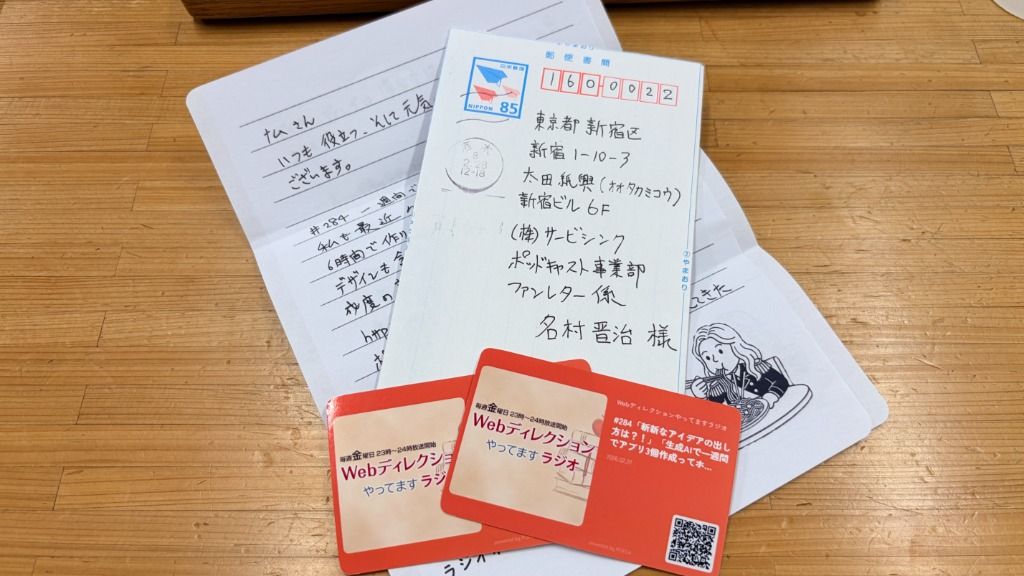 ナムさん
いつも役立つ、そして元気
ございます。
#284 一週間で
私も最近
6時間で作り
デザインも
程度の
http
郵便書簡
日本郵便
NIPPON 85
1600022
東京都 新宿区
新宿1-10-3
太田紙興(オオタカミコウ)
新宿ビル 6F
(株)サービシンク
ポッドキャスト事業部
ファンレター係
名村晋治 様
12-18
②やまおり
できた
毎週金曜日 23時〜24時放送開始
Webディレクション
やってます ラジ
毎週金曜日 23時〜24時放送開始
Webディレクション
やってます ラジオ
Webディレクションやってますラジオ
#284「斬新なアイデアの出し
方は?!」「生成AIで一週間
でアプリ3個作成って本...
ラジオ